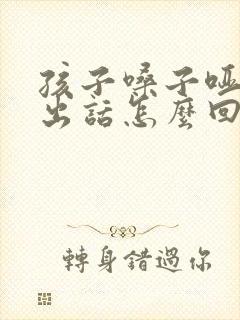 孩子嗓子哑
出話怎麼回
轉身錯過你